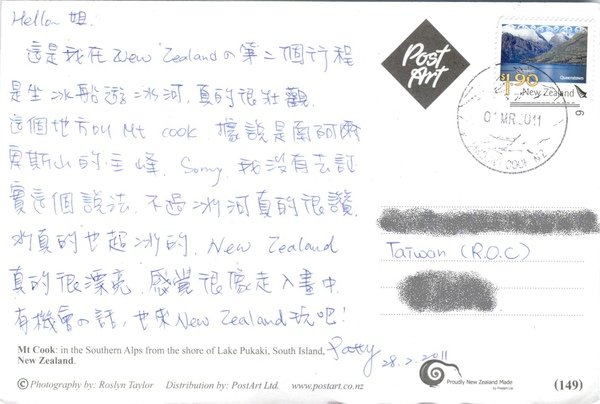 Hello 姐
這是我在New Zealandの第二個行程
是坐冰船遊冰河,真的很壯觀.
這個地方叫Mt cook 據說是南阿爾
卑斯山的主峰. Sorry, 我沒有去証
實這個說法, 不過冰河真的很讚.
水真的也超冰的, New Zealand
真的很漂亮. 感覺很像走入畫中
有機會の話, 也來New Zealand玩吧!
Patty 28.2.2011
Mt Cook: in the Southern Alps from the shore of Lake Pukaki, South Island,
New Zealand.
© Photography by: Roslyn Taylor Distribution by: PostArt Ltd. www.postart.co.nz
Post
Art
$1.90
Queenstown
New Zealand
MR 2011
MOUNT COOK N.Z
Taiwan (R.O.C)
Proudly New Zealand Made
by PostArt Ltd.
(149)